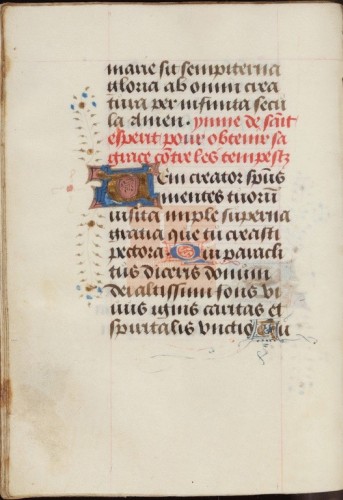 marie sit sempiterna
gloria ab omni crea
tura per infinita secu
la Amen. ymne de saīt
esperit pour obtenir sa
grace cōtre les tempestz
Veni creator spūs
mentes tuorū
visita imple superna
gratia que tu creasti
pectora. Qui paracli
tus diceris donum
dei altissimi fons vi
vus ignis caritas et
spiritalis vnctio Tu